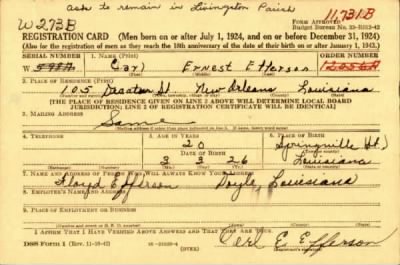 ask to remain in Livingston Parish
W 273B 11731B
FORM APPROVED
Budget Bureau No. 33-R012-42
REGISTRATION CARD (Men born on or after July 1, 1924, and on or before December 31, 1924)
(Also for the registration of men as they reach the 18th anniversary of the date of their birth on or after January 1, 1943.)
SERIAL NUMBER 1. NAME (Print) ORDER NUMBER
W Ernest Efferson
2. PLACE OF RESIDENCE (Print)
105 St New Orleans Louisiana
[THE PLACE OF RESIDENCE GIVEN ON LINE 2 ABOVE WILL DETERMINE LOCAL BOARD
JURISDICTION; LINE 2 OF REGISTRATION CERTIFICATE WILL BE IDENTICAL]
3. MAILING ADDRESS
Same
4. TELEPHONE 5. AGE IN YEARS 6. PLACE OF BIRTH
20
DATE OF BIRTH
3 3 26 Louisiana
7. NAME AND ADDRESS OF PERSON WHO WILL ALWAYS KNOW YOUR ADDRESS
Floyd Efferson Doyle, Louisiana
8. EMPLOYER'S NAME AND ADDRESS
9. PLACE OF EMPLOYMENT OR BUSINESS
I AFFIRM THAT I HAVE VERIFIED ABOVE ANSWERS AND THAT THEY ARE TRUE.
DSS Form 1 (Rev. 11-16-42) (over) Carl E. Efferson